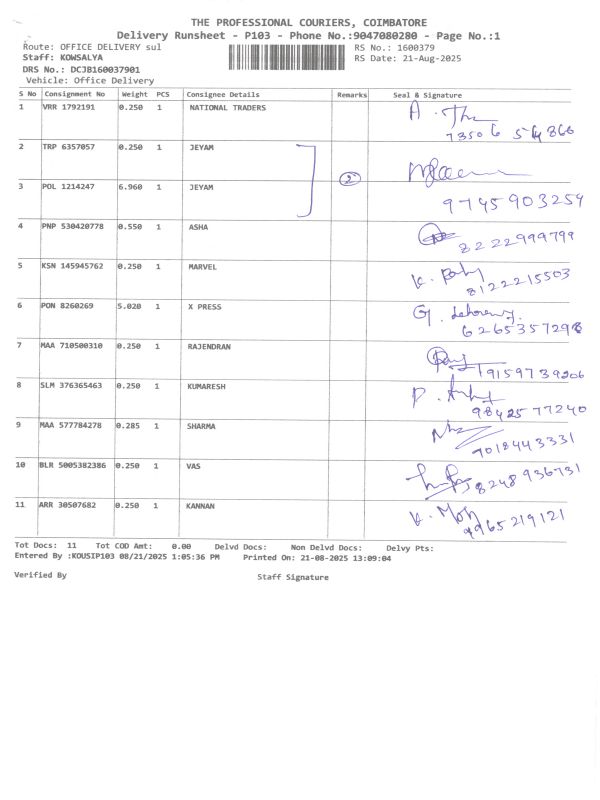 THE PROFESSIONAL COURIERS, COIMBATORE
Delivery Runsheet - P103 - Phone No.:9047080280 - Page No.:1
Route: OFFICE DELIVERY sul RS No.: 1600379
Staff: KOWSALYA RS Date: 21-Aug-2025
DRS No.: DCJB160037901
Vehicle: Office Delivery
S No Consignment No Weight PCS Consignee Details Remarks Seal & Signature
1 VRR 1792191 0.250 1 NATIONAL TRADERS
2 TRP 6357057 0.250 1 JEYAM
3 POL 1214247 6.960 1 JEYAM 9745903254
4 PNP 530420778 0.550 1 ASHA 8222999799
5 KSN 145945762 0.250 1 MARVEL 8122215503
6 PON 8260269 5.020 1 X PRESS
7 MAA 710500310 0.250 1 RAJENDRAN
8 SLM 376365463 0.250 1 KUMARESH 9842577240
9 MAA 577784278 0.285 1 SHARMA 9018443331
10 BLR 5005382386 0.250 1 VAS 8248936731
11 ARR 30507682 0.250 1 KANNAN
Tot Docs: 11 Tot COD Amt: 0.00 Delvd Docs: Non Delvd Docs: Delvy Pts:
Entered By :KOUSIP103 08/21/2025 1:05:36 PM Printed On: 21-08-2025 13:09:04
Verified By Staff Signature